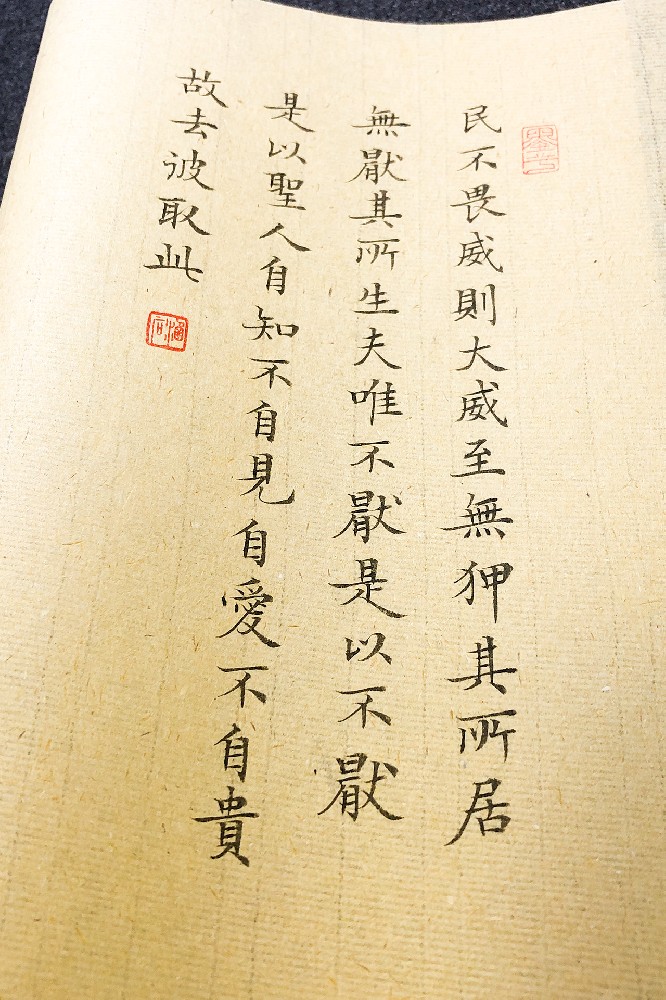 民不畏威則大威至無狎其所居
無厭其所生夫唯不厭是以不厭
是以聖人自知不自見自愛不自貴
故去彼取此